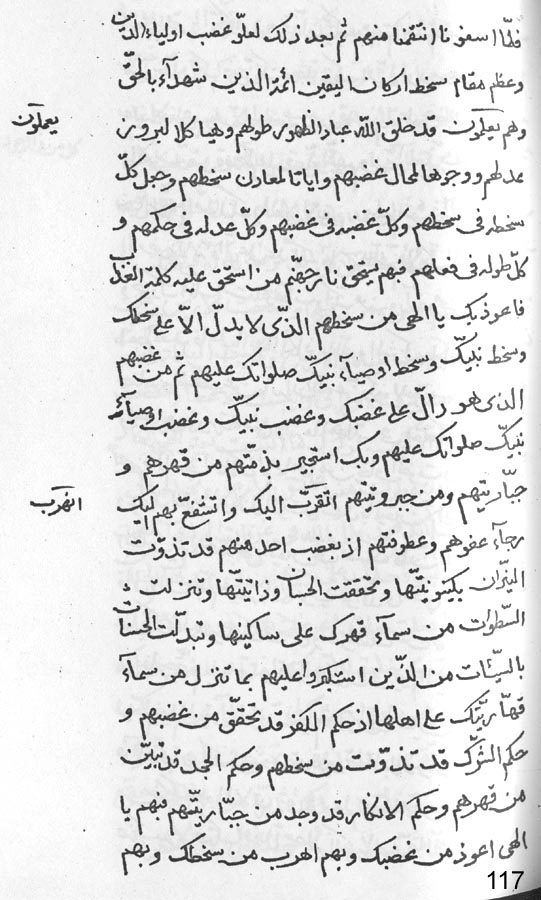 فلمّا اسفونا انتقمنا منهم ثم بعد ذلك لعلوّ غضب اولياء الدين
وعظم مقام سخط اركان اليقين ائمّة الذين شهدآء بالحقّ
وهم يعلمون قد خلق اللّه عباد الظهور طولهم وهياكلا لبروز
يعملون
عدلهم ووجوها لمحال غضبهم وايانا لمعادن سخطهم وجعل كلّ
سخطه فى سخطهم وكلّ غضبه فى غضبهم وكلّ عدله فى حكمهم و
كلّ طوله فى فعلهم فبهم يستحق نار جهنّم من استحق عليه كلمة العذاب
فاعوذ بك يا الهى من سخطهم الذّى لا يدلّ الاّ على سخطك
وسخط نبيّك وسخط اوصيآء نبيّك صلواتك عليهم ثم من غضبهم
الذى هو دالّ على غضبك وغضب نبيّك وغضب اوصيآء
نبيّك صلواتك عليهم وبك استجير بذمّتهم من قهرهم و
جبّاريتهم ومن جبروتيتهم اتقرّب اليك واتشفّع بهم اليك
اتهرب
رجآء عفوهم وعطوفتهم اذ بغضب احد منهم قد تذوّتت
النيّران بكينونيّتها وتحققت الحسبان وذاتيّتها وتنزلت
السّطوات من سمآء قهرك على ساكينها وتبدلّت الحسنات
بالسيّئات من الذّين استكبروا عليهم بما تنزل من سمآء
قهّاريّتك على اهلها اذ حكم الكفر قد تحقّق من غضبهم و
حكم الشرّك قد تذوّتت من سخطهم وحكم الجحد قد تبيّن
من قهرهم وحكم الانكار قد وجد من جبّاريتّهم فبهم يا
الهى اعوذ من غضبك وبهم اهرب من سخطك وبهم
117